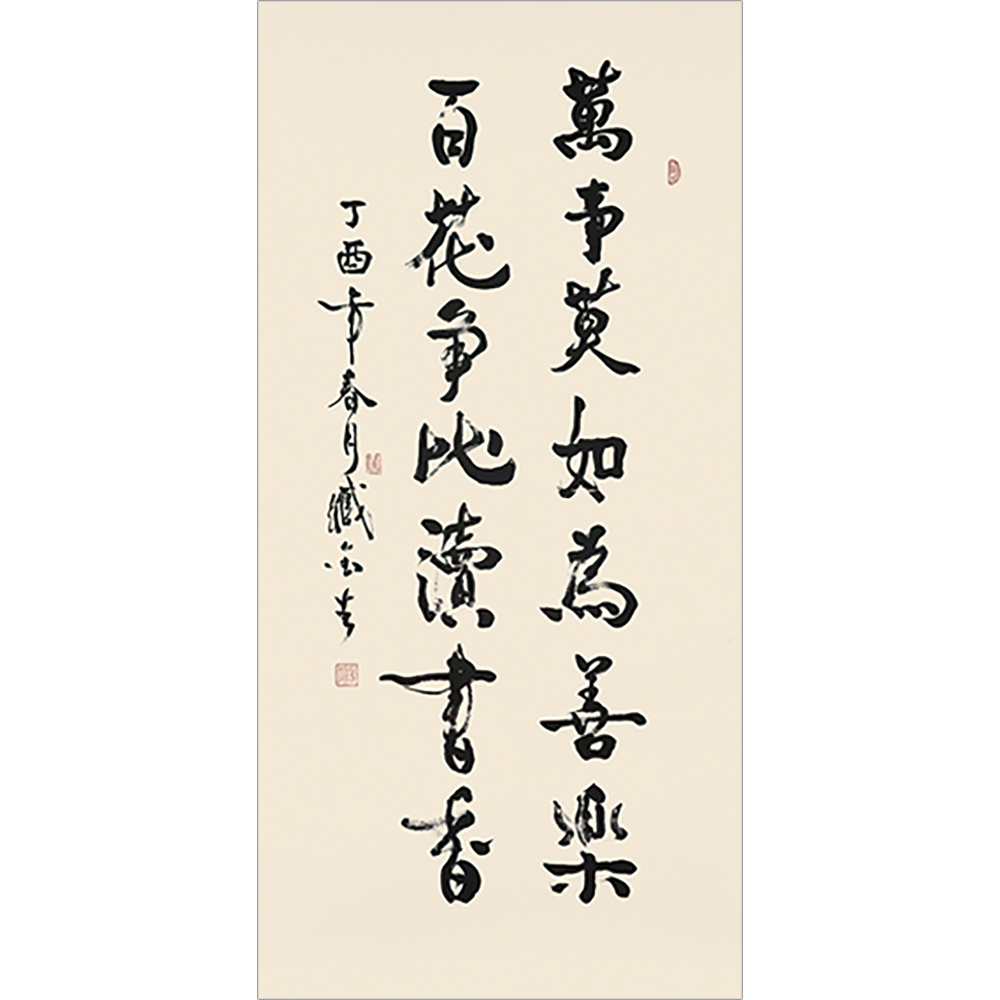 萬事莫如為善樂
百花爭比讀書香
丁酉年春月臧金生